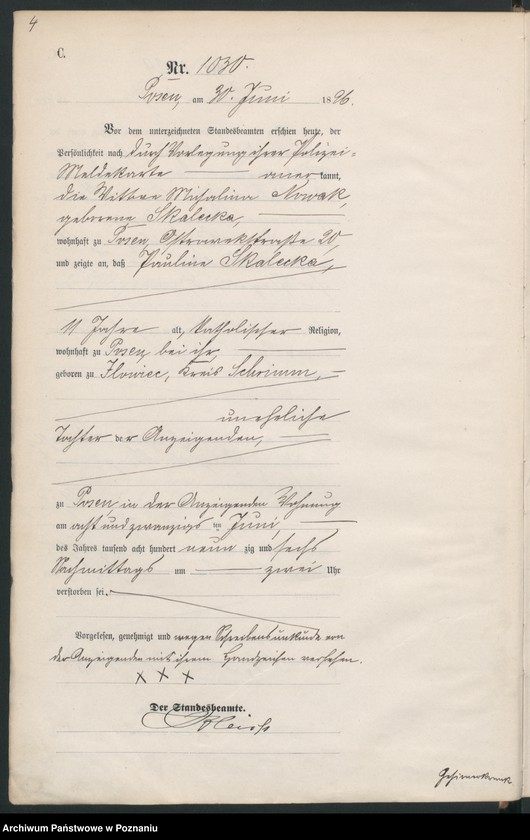 4
C.
Nr. 1030.
Posen, am 30. Juni 1896.
Vor dem unterzeichneten Standesbeamten erschien heute, der
Persönlichkeit nach durch Vorlegung ihrer Polizei-
Meldekarte anerkannt,
die Wittwe Michalina Nowak,
geborene Skalecka,
wohnhaft zu Posen, Ostrowekstraße 20
und zeigte an, daß Pauline Skalecka,
11 Jahre alt, katholischer Religion,
wohnhaft zu Posen bei ihr,
geboren zu Ilowiec, Kreis Schrimm,
uneheliche
Tochter der Anzeigenden,
zu Posen in der Anzeigenden Wohnung
am acht und zwanzigsten Juni,
des Jahres tausend acht hundert neunzig und sechs
Nachmittags um zwei Uhr
verstorben sei.
Vorgelesen, genehmigt und wegen Schreibensunkunde von
der Anzeigenden mit ihrem Handzeichen versehen.
X X X
Der Standesbeamte.
Gehirnerkrank
Archiwum Państwowe w Poznaniu